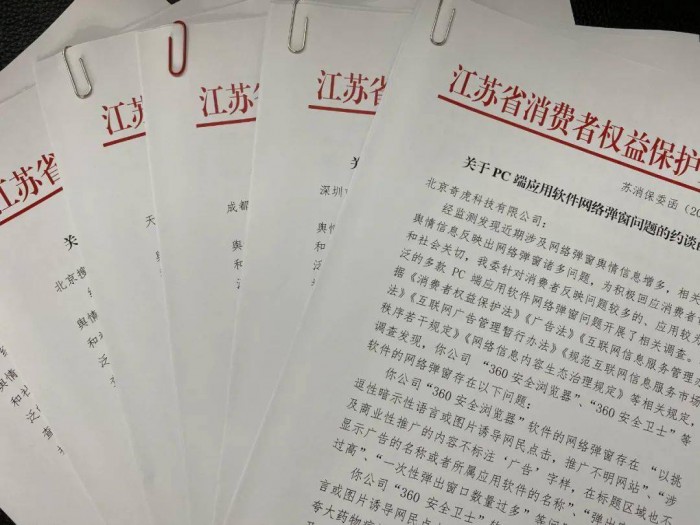 江苏省消费者权益保护
苏消保委函(20
关于 PC 端应用软件网络弹窗问题的约谈
北京奇虎科技有限公司:
经监测发现近期涉及网络弹窗舆情信息增多,相关
舆情信息反映出网络弹窗诸多问题,为积极回应消费者
和社会关切,我委针对消费者反映问题较多的、应用较为
泛的多款 PC 端应用软件网络弹窗问题开展了相关调查。
据《消费者权益保护法》《广告法》《互联网信息服务管理
法》《互联网广告管理暂行办法》《规范互联网信息服务市场
秩序若干规定》《网络信息内容生态治理规定》等相关规定,
调查发现,你公司“360 安全浏览器”、“360 安全卫士”等
软件的网络弹窗存在以下问题:
你公司“360 安全浏览器”软件的网络弹窗存在“以挑
逗性暗示性语言或图片诱导网民点击,推广不明网站”、“涉
及商业性推广的内容不标注‘广告’字样,在标题区域也不
显示广告的名称或者所属应用软件的名称”、“弹
过高”、“一次性弹出窗口数量过多”等
你公司“360 安全卫士”软
言或图片诱导网民点击
夸大药物
江苏省
深圳
舆情
和社
泛
据
法
秩
江苏省
成都
江苏
天
江苏省
关
北京
舆情
和社
泛